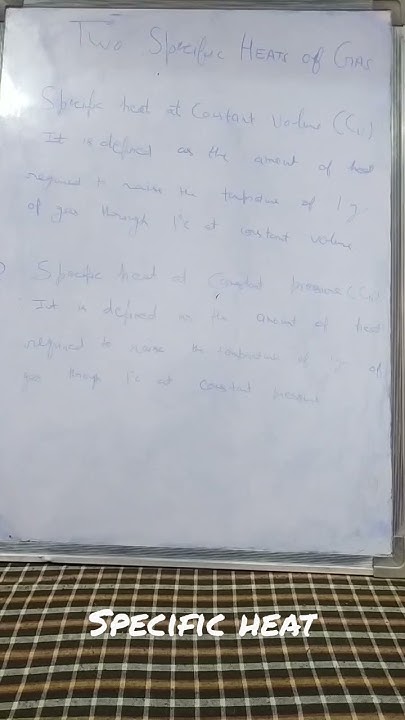 Two Specific Heats of Gas
Specific heat at Constant Volume (Cv)
It is defined as the amount of heat
required to raise the temperature of 1 g
of gas through 1°C at constant volume
Specific heat at Constant pressure (Cp)
It is defined as the amount of heat
required to raise the temperature of 1g of
gas through 1°C at constant pressure
Specific heat